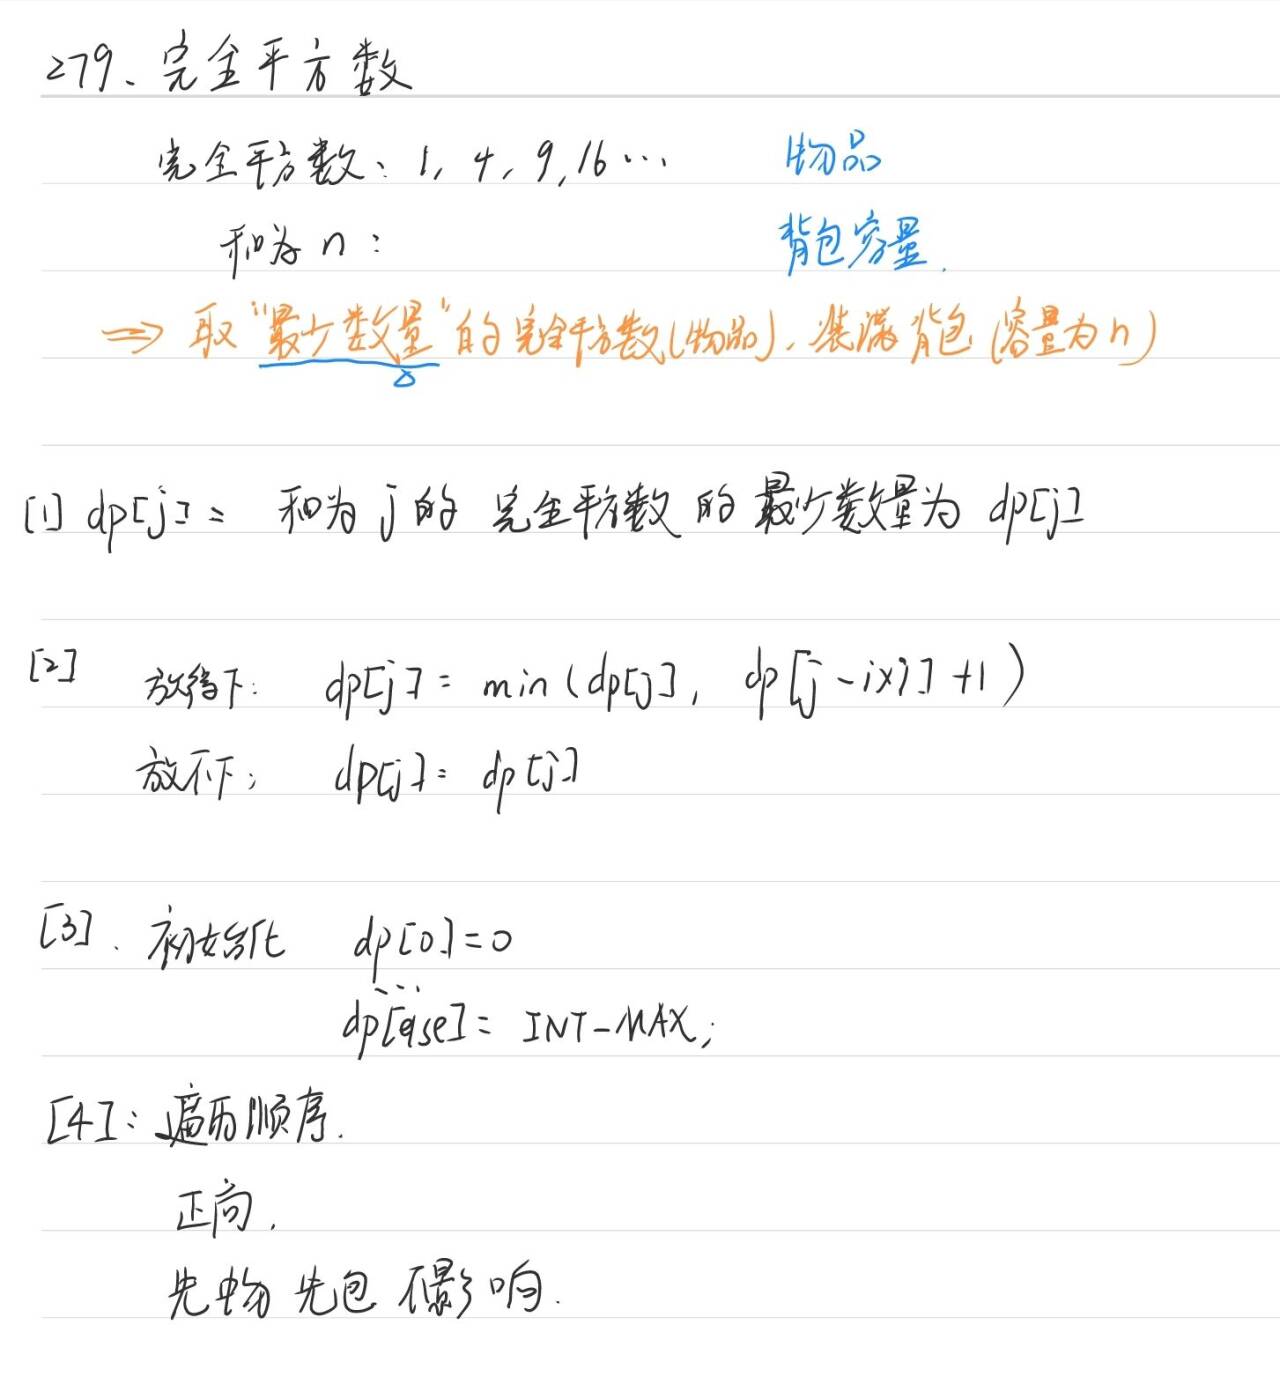 279、完全平方数
完全平方数：1, 4, 9, 16 … 物品
和为 n： 背包容量.
⇒ 取“最少数量”的完全平方数(物品)、装满背包(容量为n)
[1] dp[j] = 和为 j 的 完全平方数 的 最少数量为 dp[j]
[2] 放得下： dp[j] = min (dp[j], dp[j-i×i] +1)
放不下； dp[j] = dp[j]
[3]. 初始化 dp[0]=0
dp[else] = INT-MAX;
[4]：遍历顺序.
正向.
先物 先包 不影响.